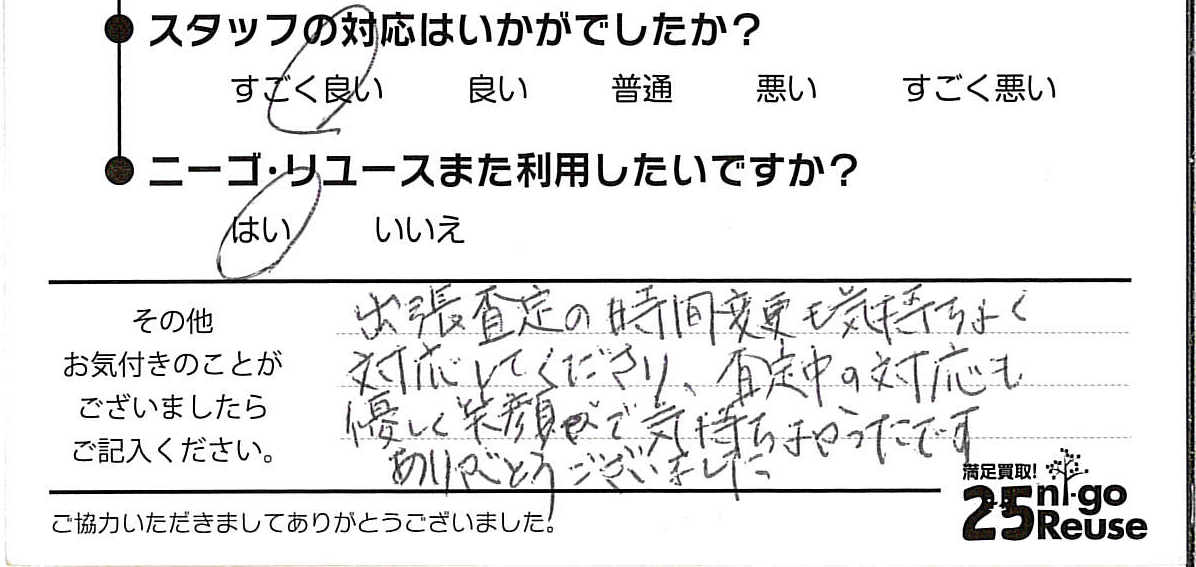 スタッフの対応はいかがでしたか？
すごく良い 良い 普通 悪い すごく悪い
ニーゴ・リユースまた利用したいですか？
はい いいえ
その他
お気付きのことが
ございましたら
ご記入ください。
出張査定の時間変更も気持ちよく
対応してくださり、査定中の対応も
優しく笑顔で気持ちよかったです
ありがとうございました
ご協力いただきましてありがとうございました。
満足買取!
25 ni-go
Reuse